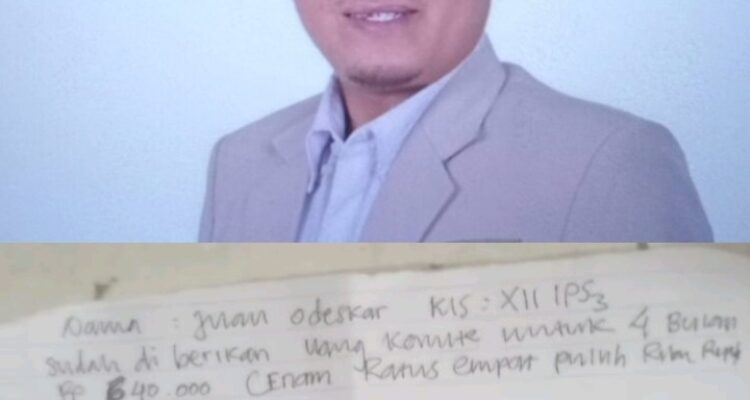 Nama : Juan Odeskar Kls : XII IPS3
sudah di berikan uang komite untuk 4 Bulan
Rp 640.000 (Enam Ratus empat puluh Ribu Rupiah